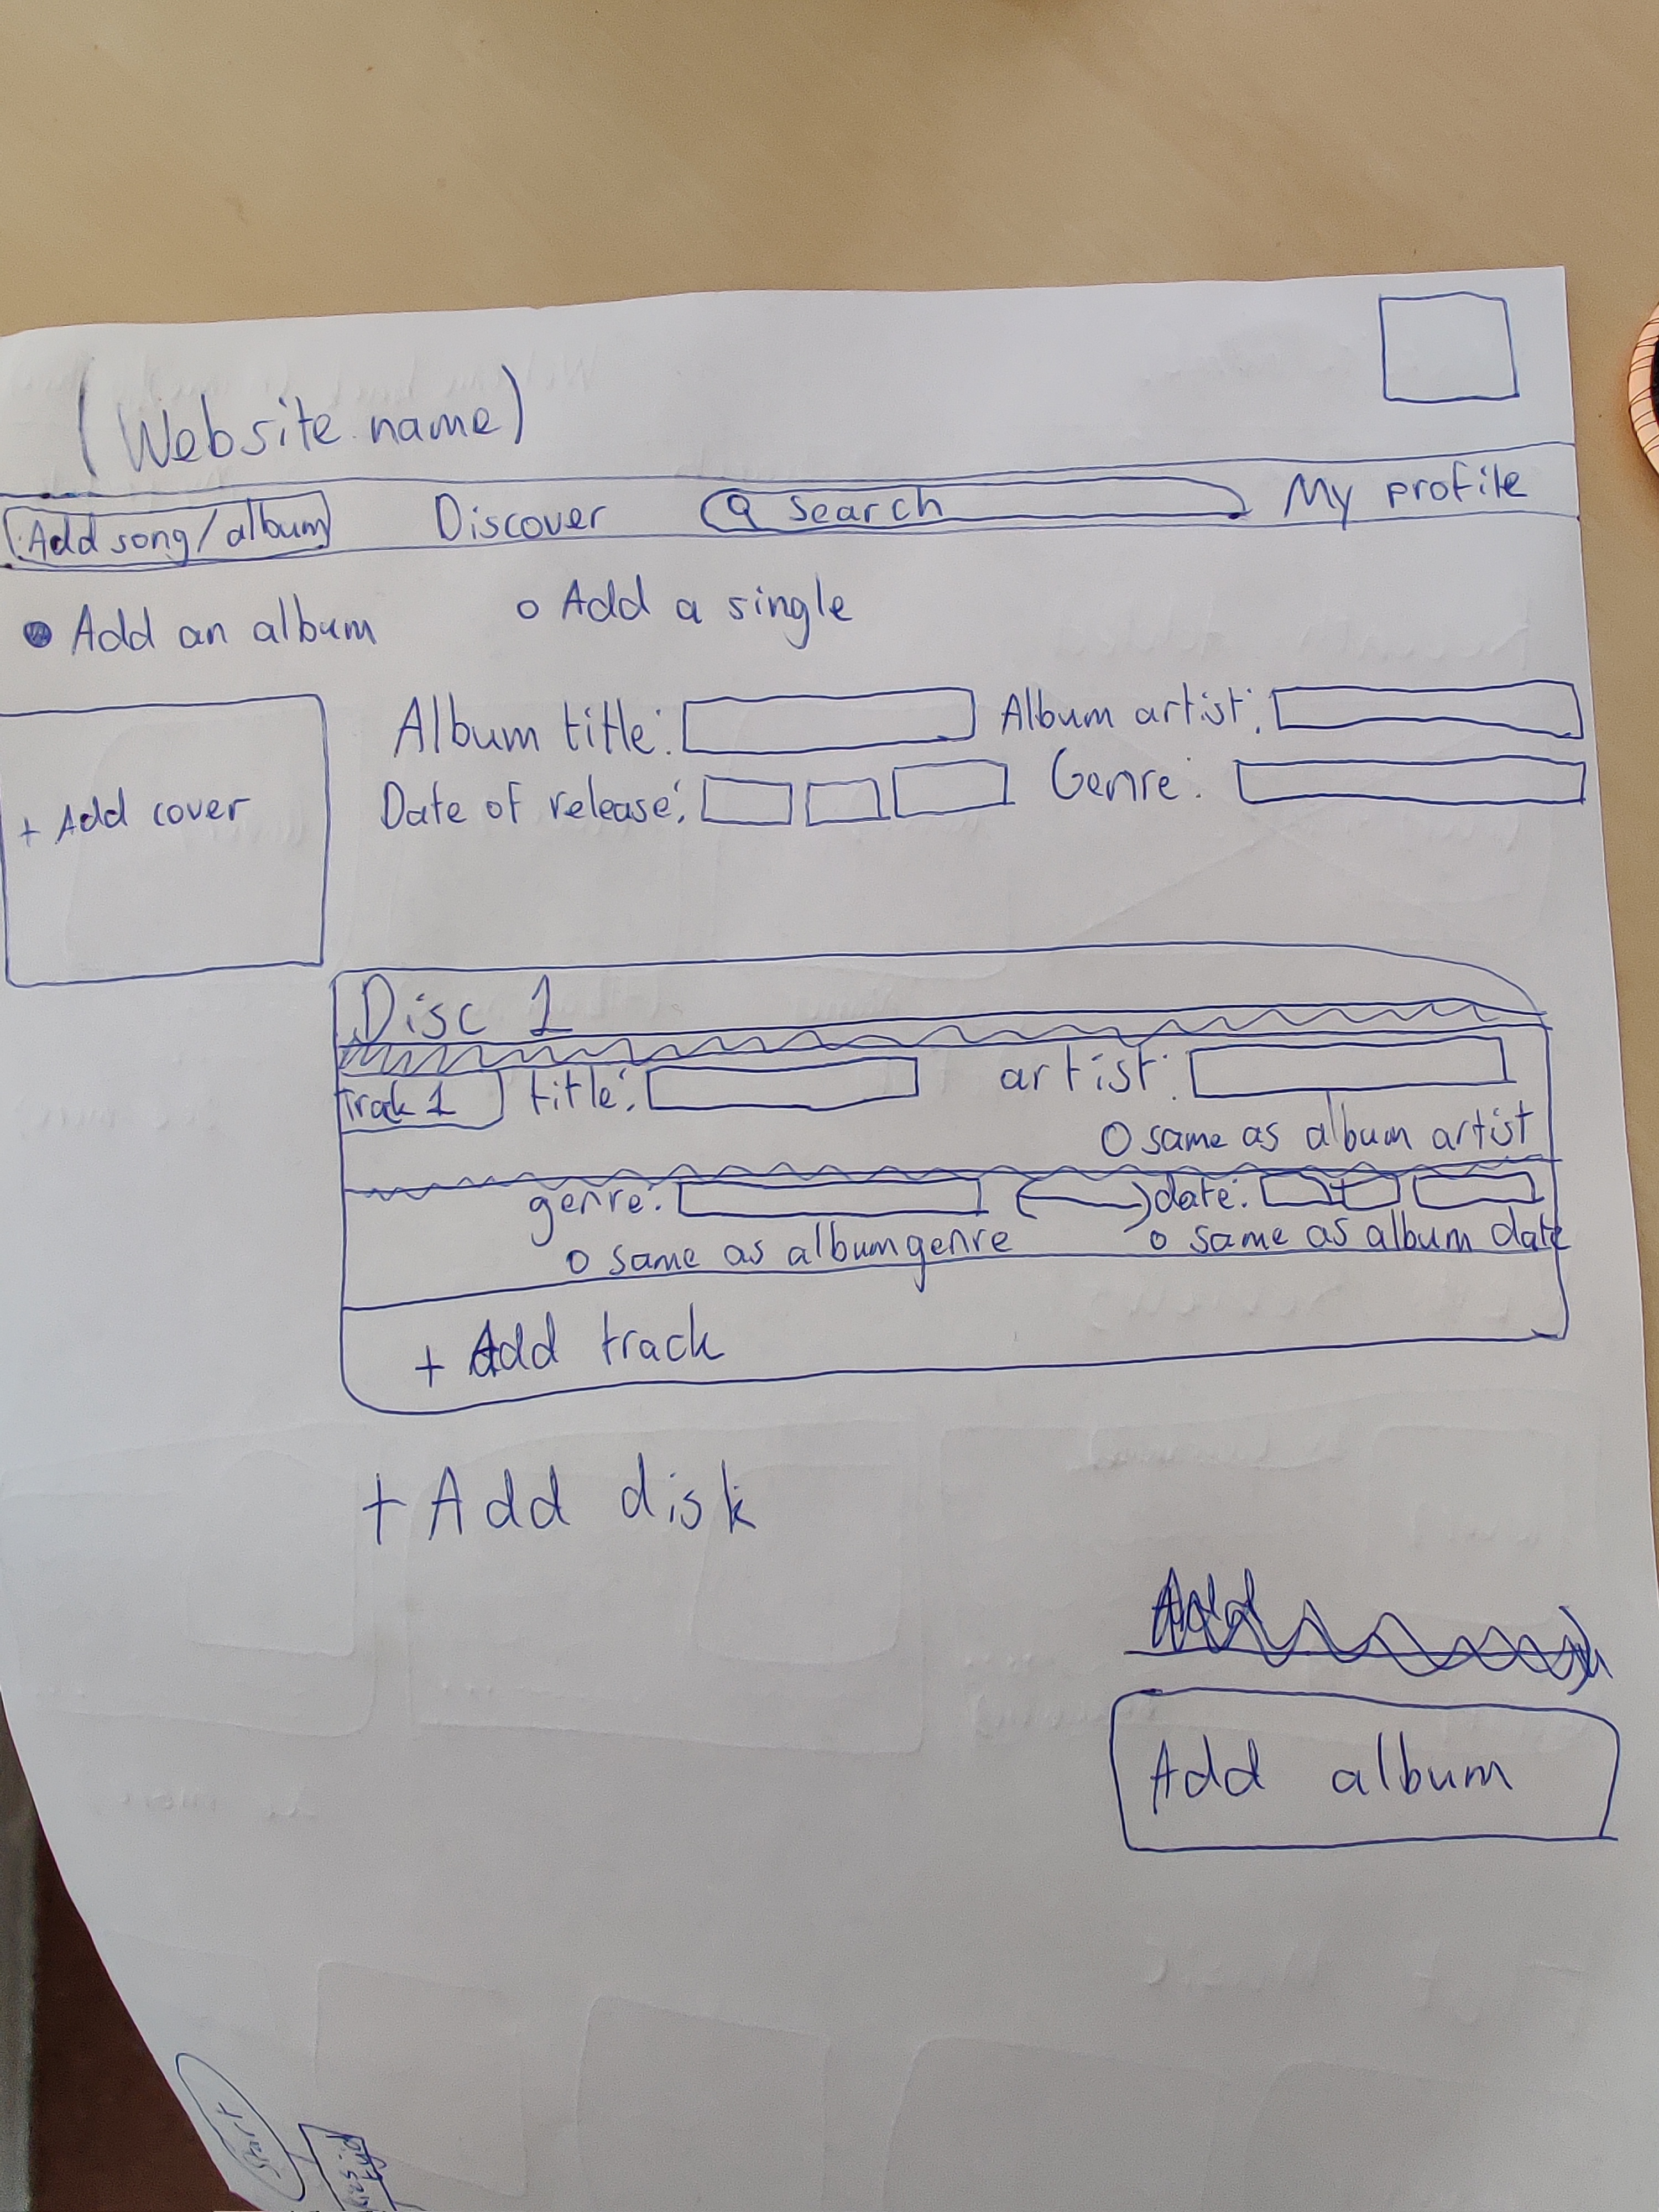 (Website name)
Add song/album Discover Search My profile
Add an album Add a single
Album title: Album artist:
+ Add cover Date of release: Genre:
Disc 1
Track 1 title: artist:
same as album artist
genre: date:
same as album genre same as album date
+ Add track
+ Add disk
Add
Add album
start